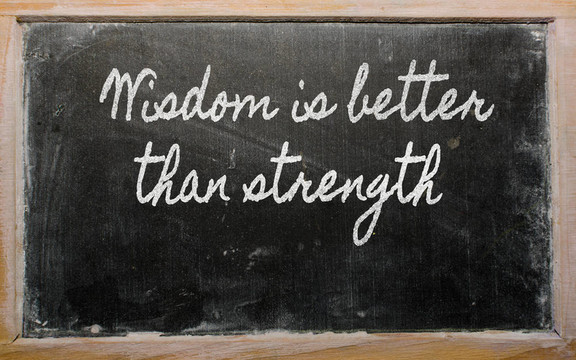 Wisdom is better
than strength